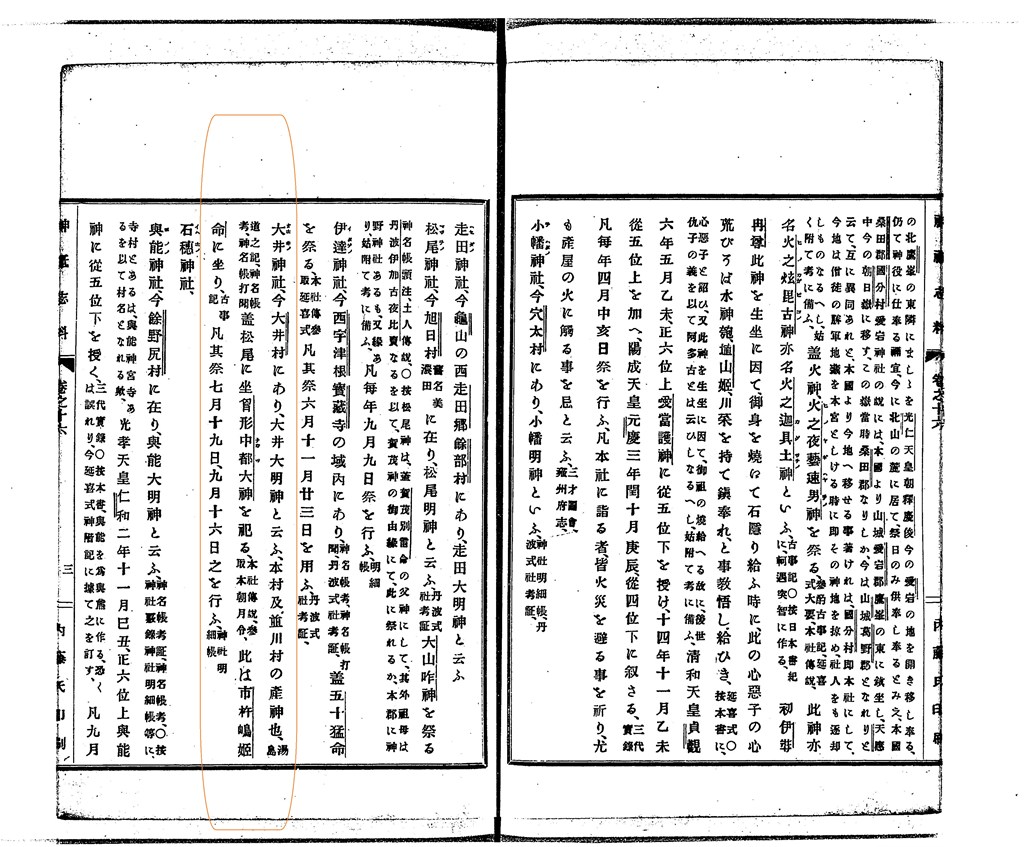 の北鷹峯の東隣にましゝを光仁天皇朝釋慶後今の愛宕の地を開き移し奉る、
仍て神役に仕奉る禰宜、今に北山の麓に居て、祭日のみ供奉し奉るとみえ、本國
桑田郡國分村愛宕神社の說には、本國より山城愛宕郡鷹峯の東に鎮坐し、天應
中今の朝日嶽に移す、この嶽當時桑田郡なりしか、今は山城葛野郡となれりと
云て、互に異同あれと、本國より今地へ移せる事著けれは、國分村即本社にして、
しものなるへし、姑
く附て考に備ふ、
蓋火神、火之夜藝速男神を祭る、
此神亦
名火之炫毘古神亦名火之迦具土神といふ、
古事記〇按日本書紀
に軻遇突智に作る、
初伊弉
冉尊此神を生坐に因て御身を燒いて石隱り給ふ時に此の心惡子の心
荒ひろは水神匏埴山姬、川菜を持て鎮奉れと事敎悟し給ひき、
延喜式〇
按本書に、
心惡子と詔ひ、又此神を生坐に因て、御祖の燒給へる故に、後世
仇子の義を以て阿多古とは云ひしなるへし、姑附て考に備ふ、
清和天皇貞觀
六年五月乙未正六位上愛當護神に從五位下を授け、十四年十一月乙未
從五位上を加へ、陽成天皇元慶三年閏十月庚辰、從四位下に叙さる、
三代
實錄
凡每年四月中亥日祭を行ふ、凡本社に詣る者、皆火災を避る事を祈り、尤
も產屋の火に觸る事を忌と云ふ、
三才圖會、
雍州府志、
小幡神社、今穴太村にあり、小幡明神といふ、
神社明細帳、丹
波式社考証、
走田神社、今龜山の西走田鄕餘部村にあり、走田大明神と云ふ
松尾神社、今旭日村
に在り、松尾明神と云ふ、
丹波式
社考証
大山咋神を祭る
神名帳頭注、土人傳說、〇按松尾神は、
賀茂別雷命の父神にして、其外祖母は
丹波伊加古夜比賣なるを以て、賀茂神の御由緣にて、此に祭れるか、本郡に神
野神社あるも、又緣あ
り、姑附て考に備ふ、
凡每年九月九日祭を行ふ、
明細
帳
伊達神社、今西宇津根寶藏寺の域內にあり、
神名帳考、神名帳打
聞、丹波式社考証、
蓋五十猛命
を祭る、
本社傳說參
取延喜式
凡其祭六月十一月廿三日を用ふ、
丹波式
社考証
大井神社、今大井村にあり、大井大明神と云ふ、本村及、並川村の產神也、
湯
島
道之記、神名帳
考、神名帳打聞
蓋松尾に坐胷形中都大神を祀る、
本社傳說、參
取本朝月令、
此は市杵嶋姬
命に坐り、
古事
記
凡其祭七月十九日、九月十六日之を行ふ、
神社明
細帳
石穗神社、
與能神社、今餘野尻村に在り、與能大明神と云ふ、
神名帳考証、神名帳考、〇按
神社覈錄、神社明細帳等に、
寺村とあるは、與能神宮寺あ
るを以て村名となれる歟、
光孝天皇仁和二年十一月己丑、正六位上與能
神に從五位下を授く、
三代實錄〇按本書、與能を爲與熊に作る、恐く
は誤れり、今延喜式神階記に據て之を訂す、
凡九月
三